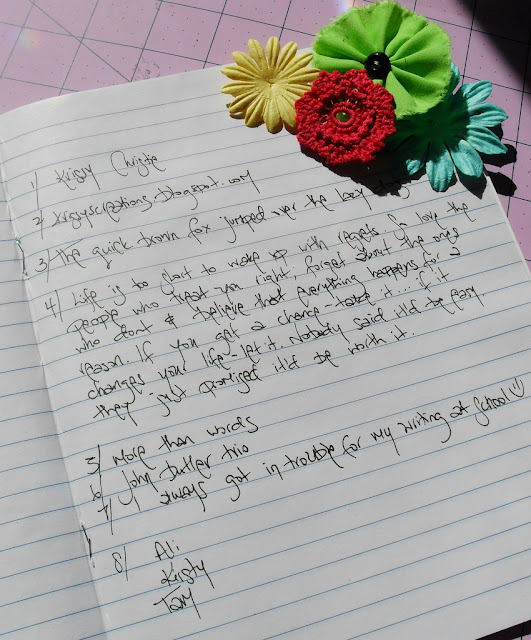 1/ Christie
2/
3/ The quick brown fox jumped over the lazy
4/ Life is to short to wake up with regets. So love the
people who treat you right, forget about the ones
who dont & believe that everything happens for a
reason. If you get a chance - take it... if it
changes your life - let it. Nobody said it'd be easy
they just promised it'd be worth it.
5/ More than words
6/ John Butler trio
7/ always got in trouble for my writing at school
8/ Ali
Kirsty